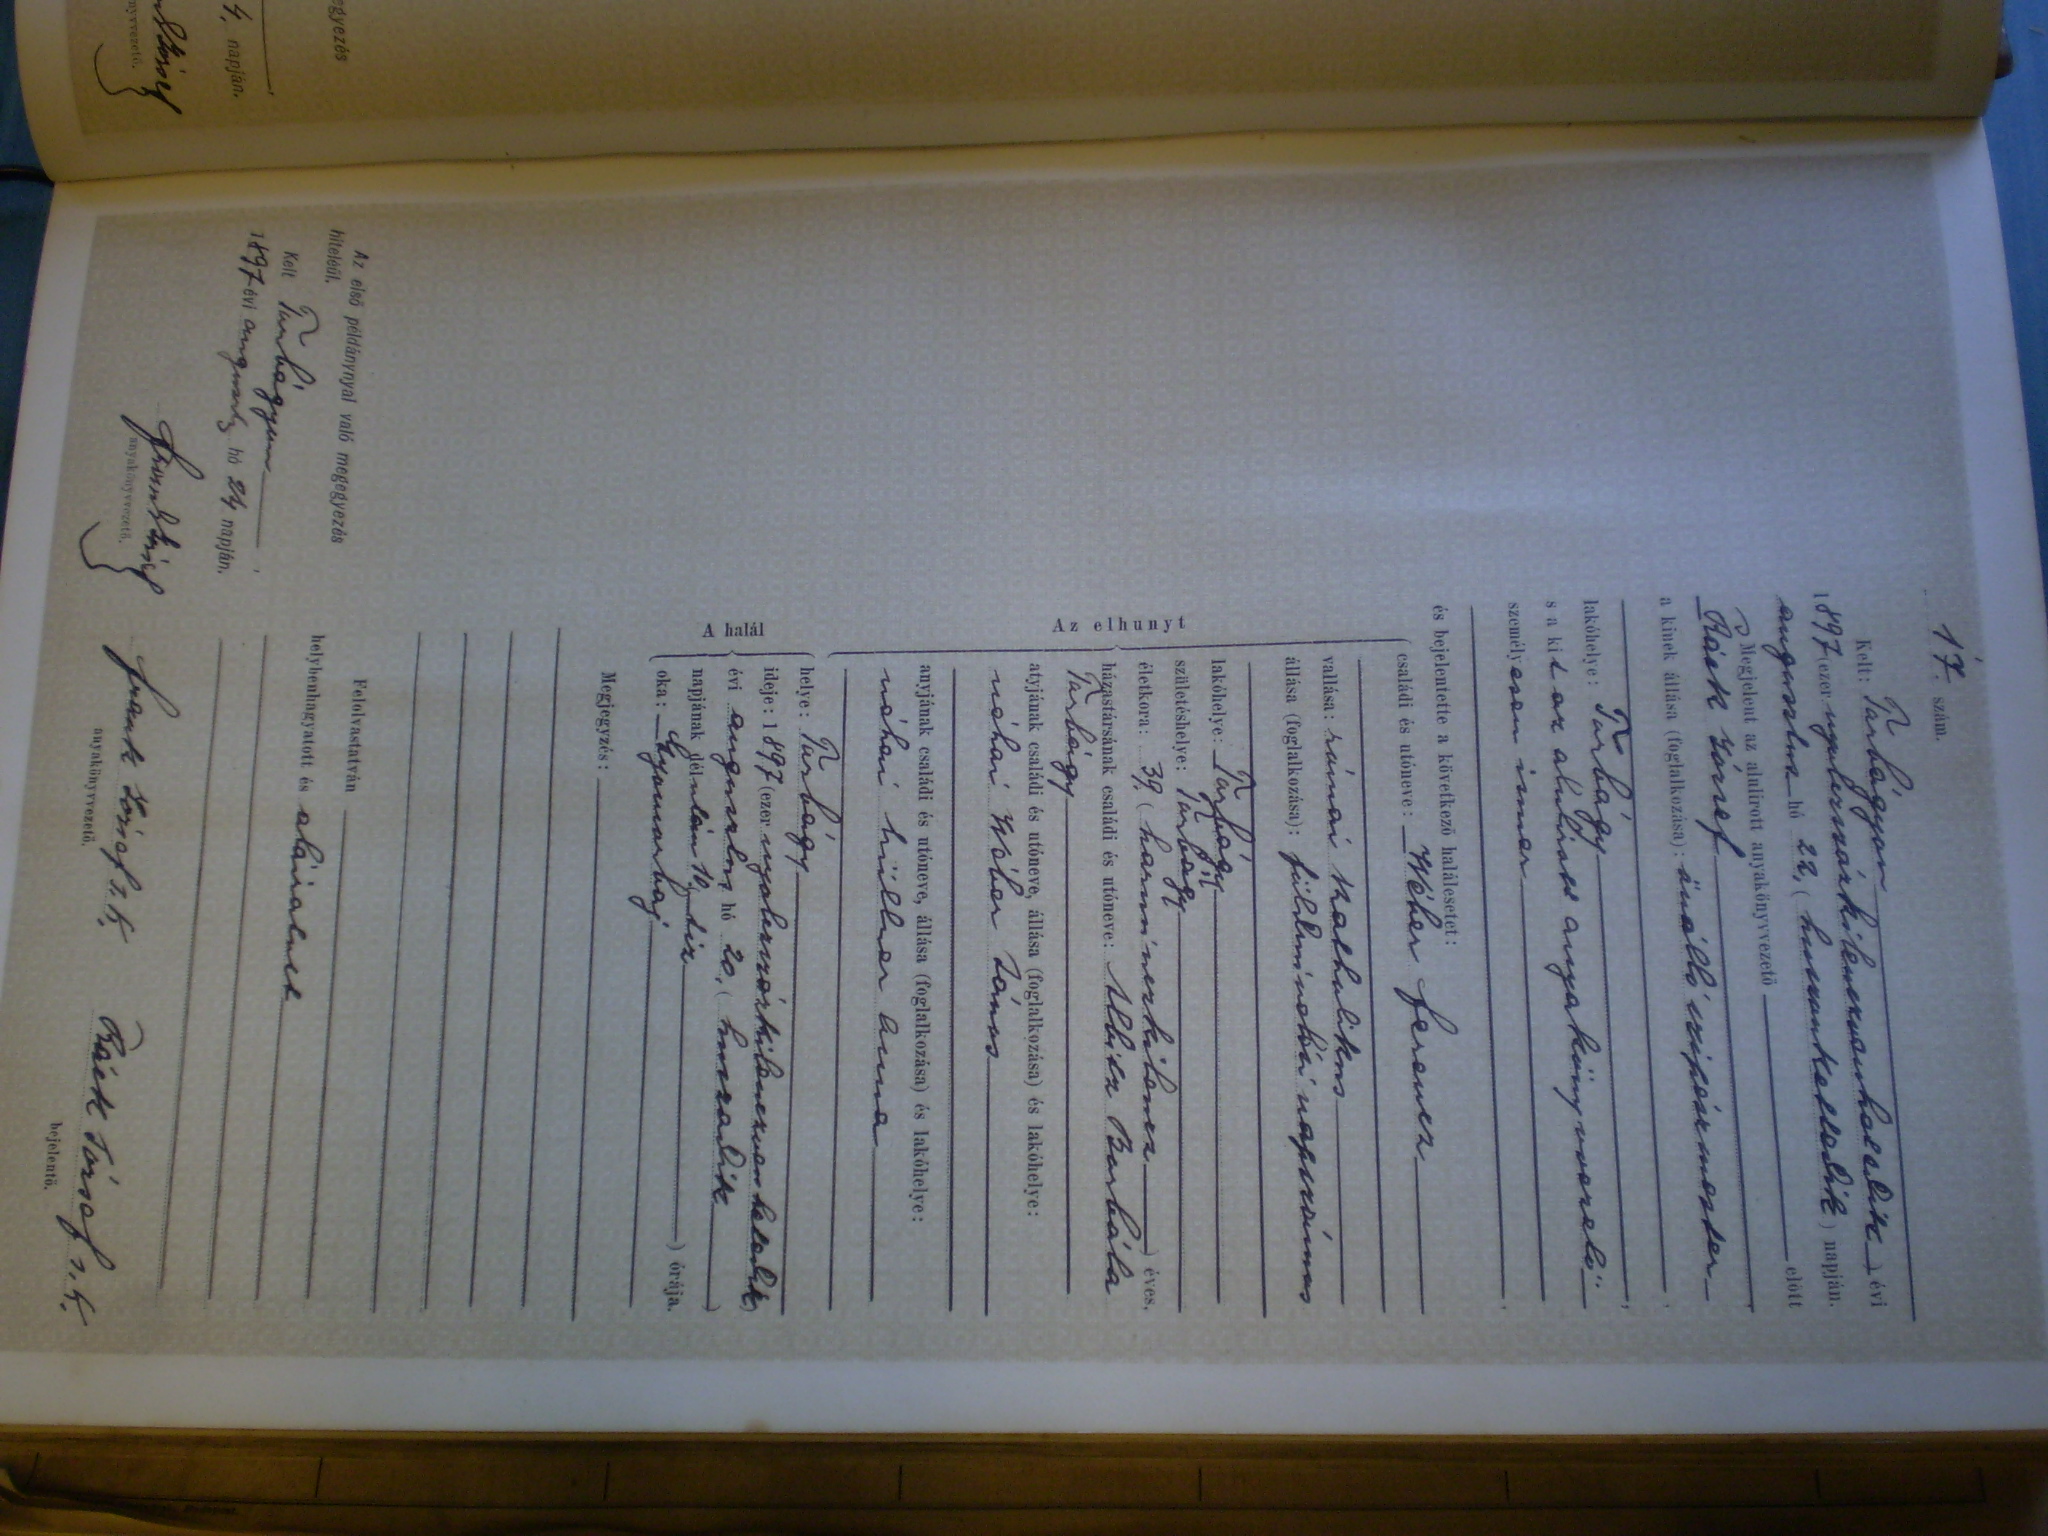 17. szám.
Kelt: Torbágyon
1897 (ezer nyolczszázkilenczvenhetedik) évi
augusztus hó 22. (huszonkettedik) napján.
Megjelent az alulirott anyakönyvvezető előtt
József
a kinek állása (foglalkozása): önálló czipészmester
lakóhelye: Torbágy
s a kit az alulirott anyakönyvvezető
személyesen ismer
és bejelentette a következő halálesetet:
Az elhunyt
családi és utóneve: Wéber Ferencz
vallása: római katholikus
állása (foglalkozása): földmívelő napszámos
lakóhelye: Torbágy
születéshelye: Torbágy
életkora: 39, (harminczkilencz) éves.
házastársának családi és utóneve: Borbála
Torbágy
atyjának családi és utóneve, állása (foglalkozása) és lakóhelye:
néhai Wéber János
anyjának családi és utóneve, állása (foglalkozása) és lakóhelye:
néhai Hiller Anna
A halál
helye: Torbágy
ideje: 1897 (ezer nyolczszázkilenczvenhetedik)
évi augusztus hó 20. (huszadik)
napjának délután 10, tiz ) órája.
oka: Gyomorbaj
Megjegyzés:
Felolvastatván
helybenhagyatott és aláiratott
Frank József s. k.
anyakönyvvezető.
József s. k.
bejelentő.
Az első példánynyal való megegyezés
hiteleül.
Kelt Torbágyon
1897 évi augusztus hó 24 napján.
Frank József
anyakönyvvezető.
egyezés
4. napján.
nyvvezető.